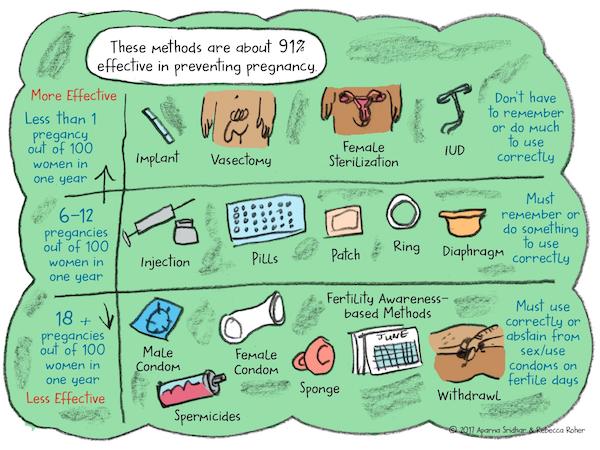 These methods are about 91%
effective in preventing pregnancy.
More Effective
Less than 1
pregancy
out of 100
women in
one year
Implant
Vasectomy
Female
Sterilization
IUD
Don't have
to remember
or do much
to use
correctly
6-12
pregancies
out of 100
women in
one year
Injection
Pills
Patch
Ring
Diaphragm
Must
remember or
do something
to use
correctly
18 +
pregancies
out of 100
women in
one year
Less Effective
Male
Condom
Female
Condom
Spermicides
Sponge
Fertility Awareness-
based Methods
JUNE
Withdrawl
Must use
correctly or
abstain from
sex/use
condoms on
fertile days
© 2017 Aparna Sridhar & Rebecca Roher